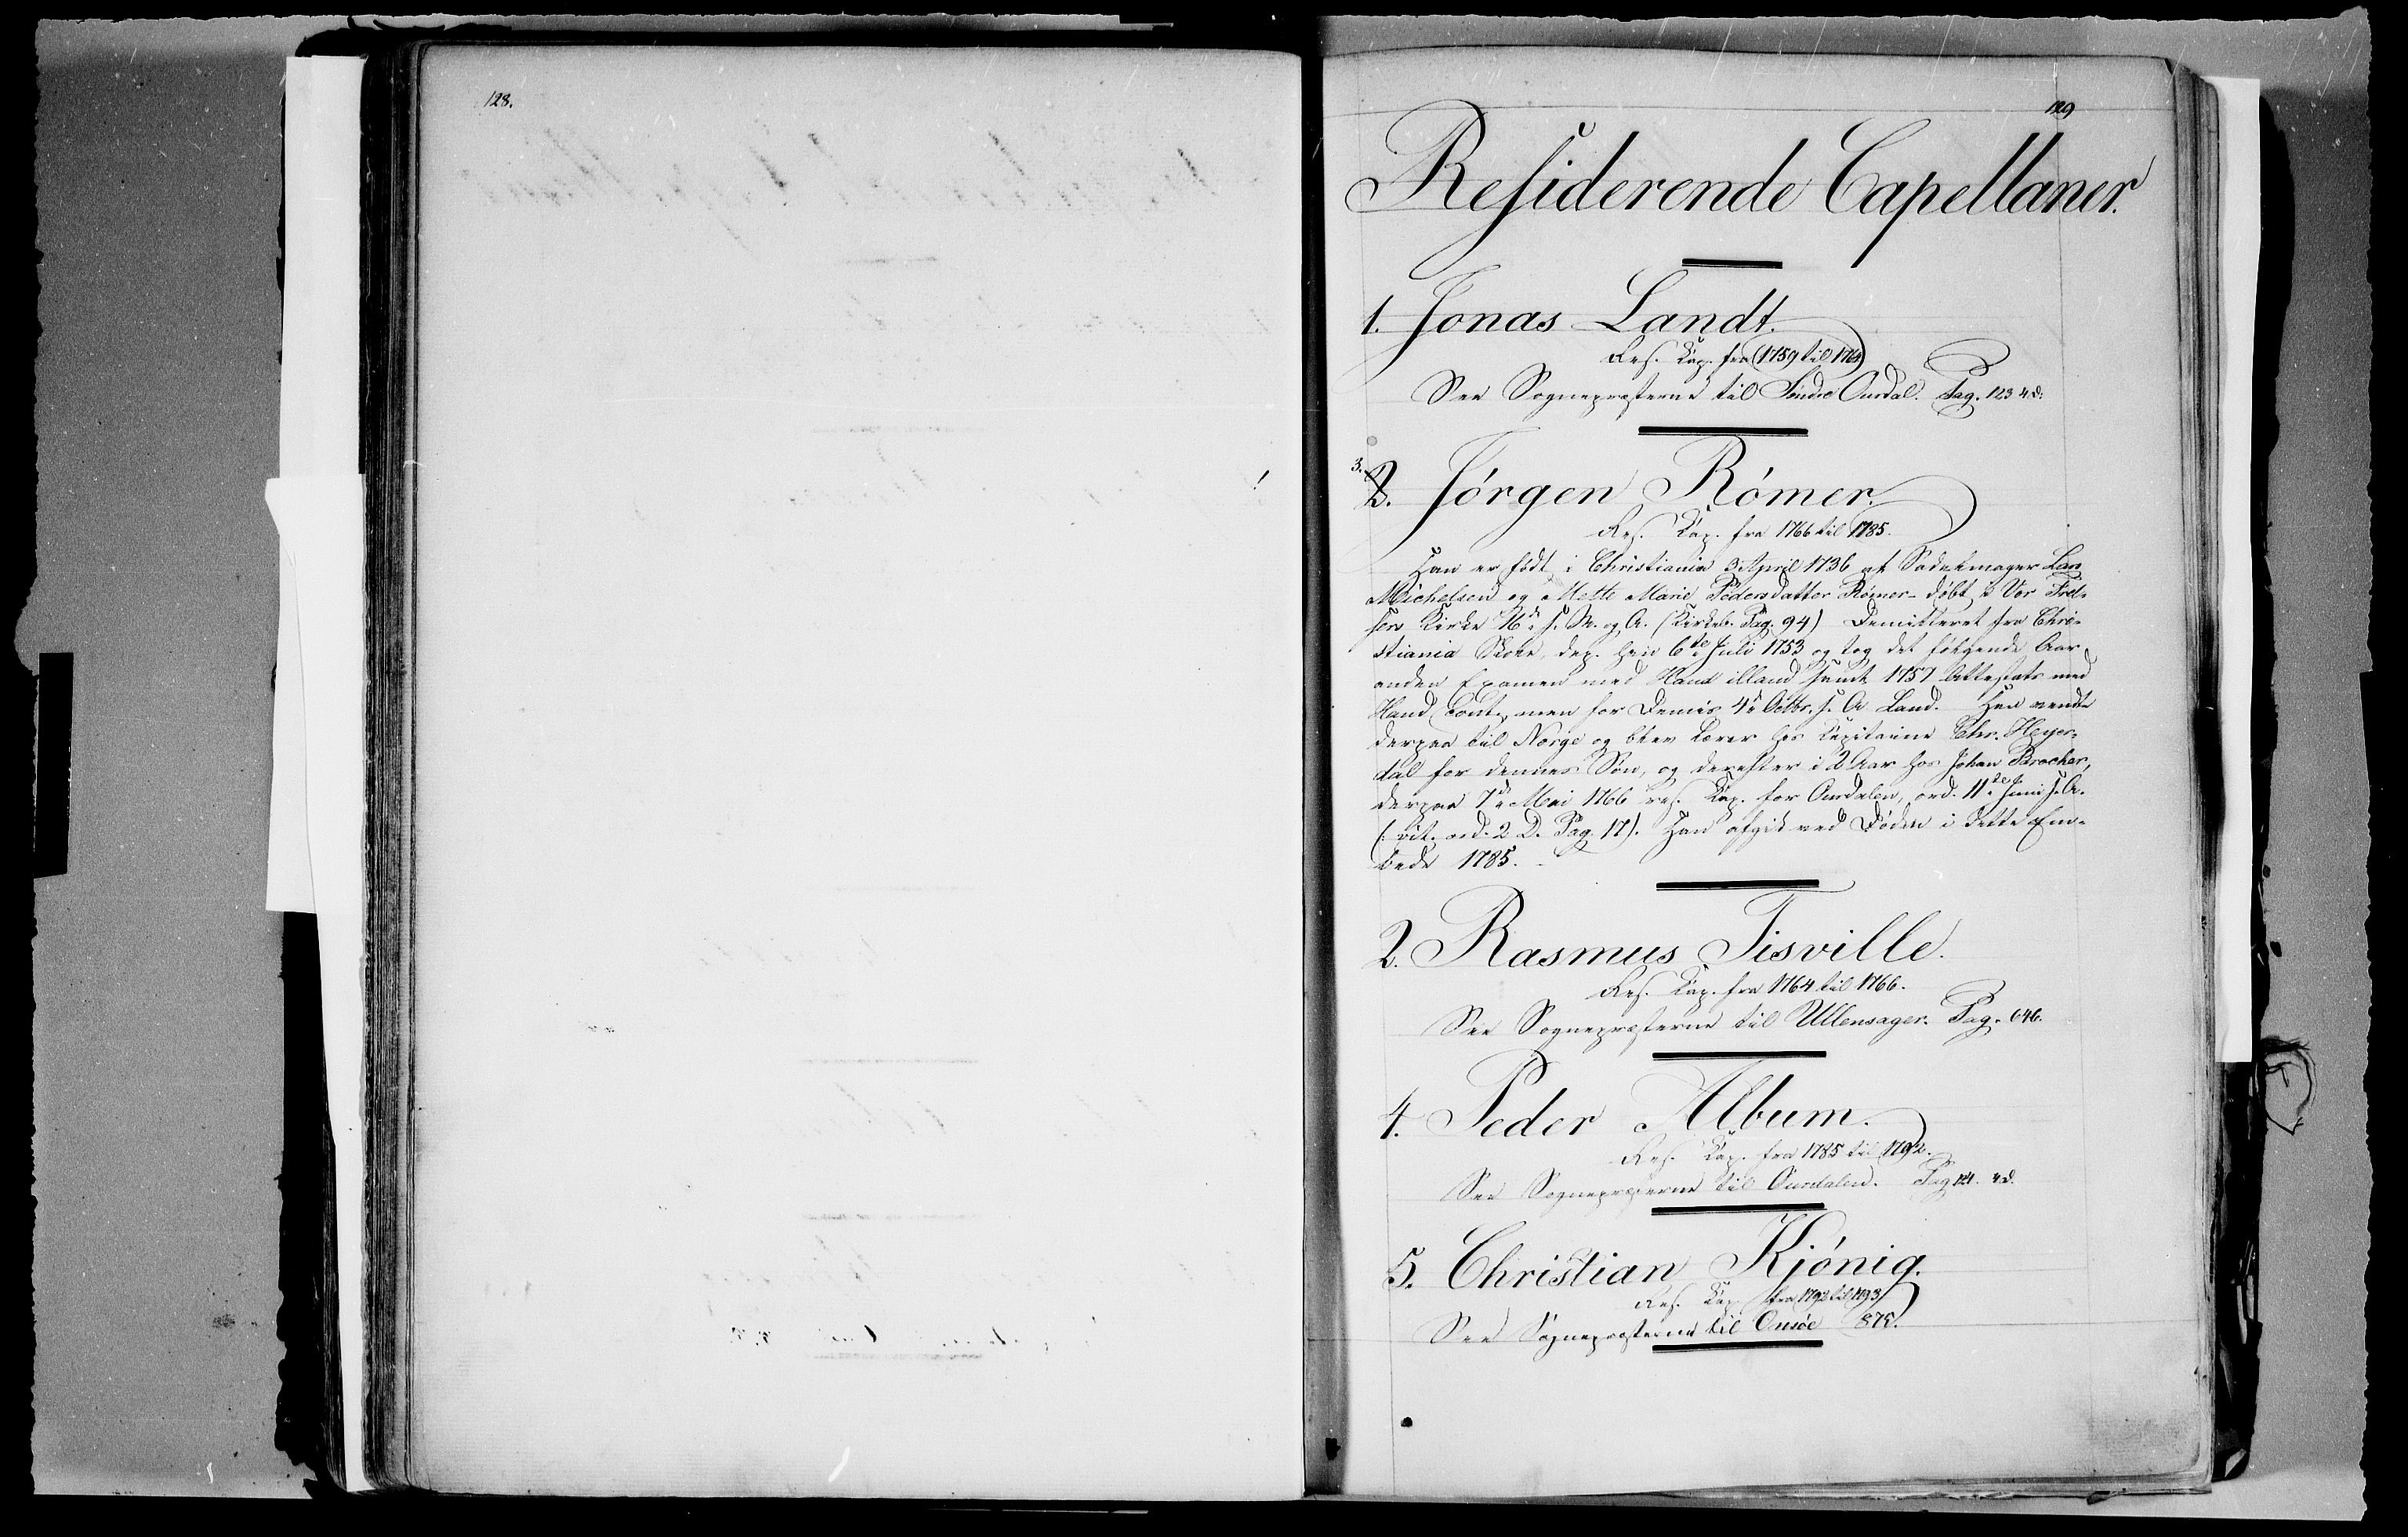 128.
129
Residerende Capellaner.
1. Jonas Landt.
Res. Kap. fra (1759 til 1764)
See Sognepræsterne til Søndre Ourdal. Pag. 123 4.D.
3.
2. Jørgen Römer.
Res. Kap. fra 1766 til 1785.
Han er født i Christiania 3 April 1736 af Sadelmager Lars
Michelsen og Mette Marie Pedersdatter Römer - døbt i Vor Frel-
sers Kirke 16de s. M. og A. (Kirkeb. Pag. 94) Demitteret fra Chri-
stiania Skole, dep. hvir 6te Juli 1753 og tog det følgende Aar
anden Examen med Haud illaud samt 1757 Attestats med
Haud Cont., men for Demis 4de Octbr. s. A. Laud. Han vendte
derpaa til Norge og blev Lærer hos Kapitaine Chr. Heyer-
dal for dennes Søn, og derefter i 2 Aar hos Johan Brochер,
derpaa 7de Mai 1766 res. Kap. for Ourdalen, ord. 11te Juni s. A.
(: vit. ord. 2 D. Pag. 17). Han afgik ved Døden i dette Em-
bede 1785.
2. Rasmus Tisville.
Res. Kap. fra 1764 til 1766.
See Sognepræsterne til Ullensager. Pag. 646.
4. Peder Album.
Res. Kap. fra 1785 til 1792.
See Sognepræsterne til Ourdalen. Pag 124. 4.D.
5. Christian Kjönig.
Res. Kap. fra 1792 til 1793
See Sognepræsterne til Onsøe 875.